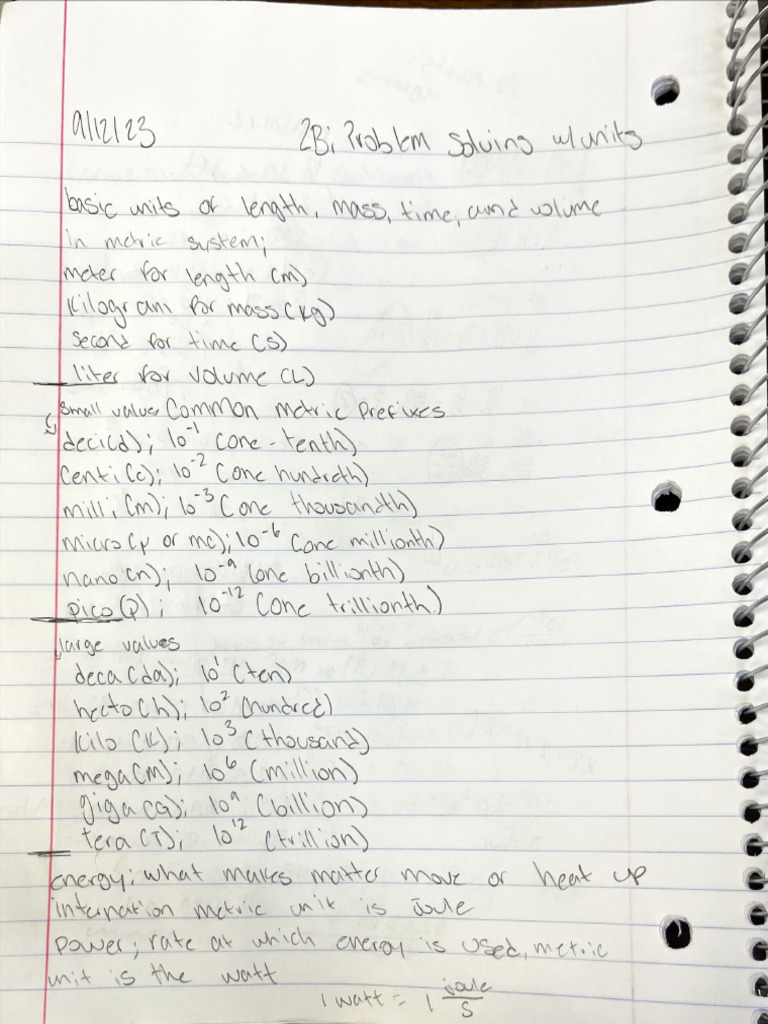 9/12/23 2B; Problem Solving w/units
basic units of length, mass, time, and volume
in metric system;
meter for length (m)
kilogram for mass (kg)
second for time (s)
liter for volume (L)
small values Common metric prefixes
deci(d); 10⁻¹ (one-tenth)
centi (c); 10⁻² (one hundreth)
milli (m); 10⁻³ (one thousandth)
micro (μ or mc); 10⁻⁶ (one millionth)
nano (n); 10⁻⁹ (one billionth)
pico (p); 10⁻¹² (one trillionth)
large values
deca (da); 10¹ (ten)
hecto (h); 10² (hundred)
kilo (k); 10³ (thousand)
mega (M); 10⁶ (million)
giga (G); 10⁹ (billion)
tera (T); 10¹² (trillion)
energy; what makes matter move or heat up
internation metric unit is Joule
power; rate at which energy is used, metric
unit is the watt
1 watt = 1 joule/s